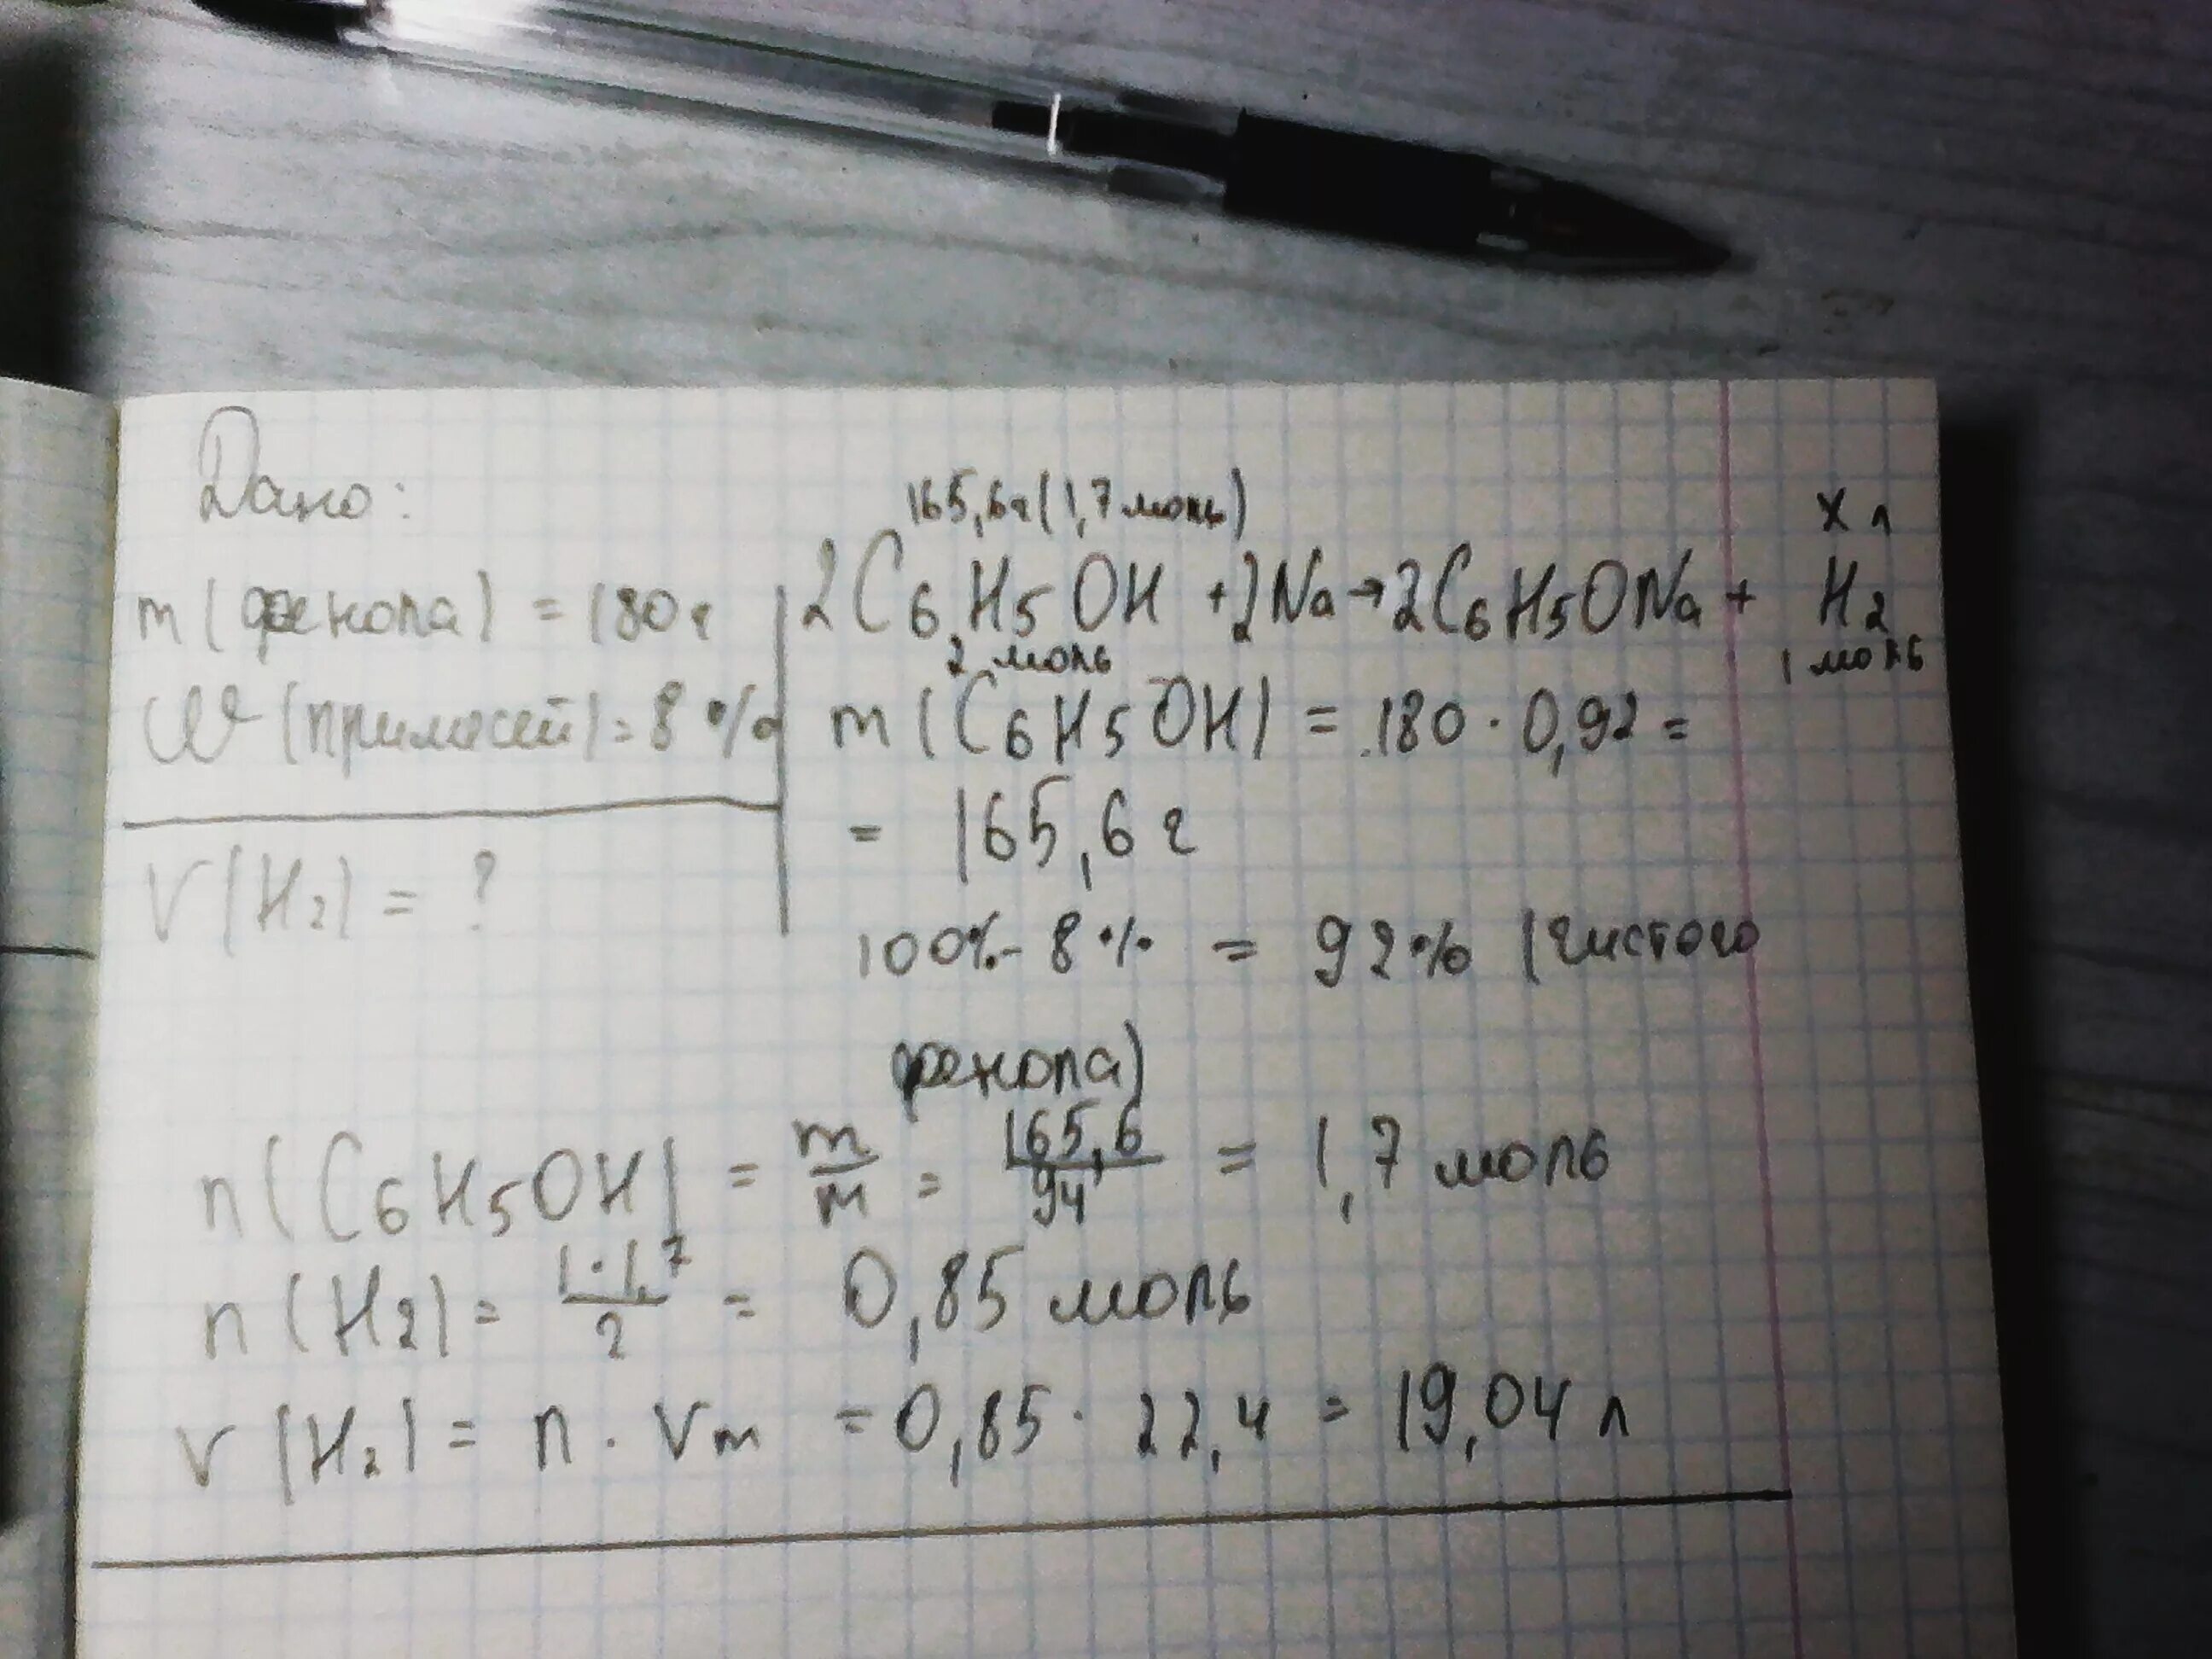 Дано:
m (фенола) = 180 г
W (примесей) = 8 %
V (H₂) = ?
165,6г (1,7 моль)
x л
2C₆H₅OH + 2Na → 2C₆H₅ONa + H₂
2 моль
1 моль
m (C₆H₅OH) = 180 · 0,92 =
= 165,6 г
100% - 8 % = 92% (чистого
фенола)
n (C₆H₅OH) = m/m = 165,6/94 = 1,7 моль
n (H₂) = 1·1,7/2 = 0,85 моль
V (H₂) = n · Vm = 0,85 · 22,4 = 19,04 л